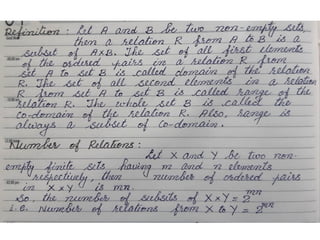 Definition : Let A and B be two non-empty sets,
then a relation R from A to B is a
subset of A×B. The set of all first elements
of the ordered pairs in a relation R from
set A to set B is called domain of the relation
R. The set of all second elements in a relation
R from set A to set B is called range of the
relation R. The whole set B is called the
co-domain of the relation R. Also, range is
always a subset of co-domain.
Number of Relations :
Let X and Y be two non-
empty finite sets having m and n elements
respectively, then number of ordered pairs
in X×Y is mn.
So, the number of subsets of X×Y = 2^mn
i.e. Number of relations from X to Y = 2^mn